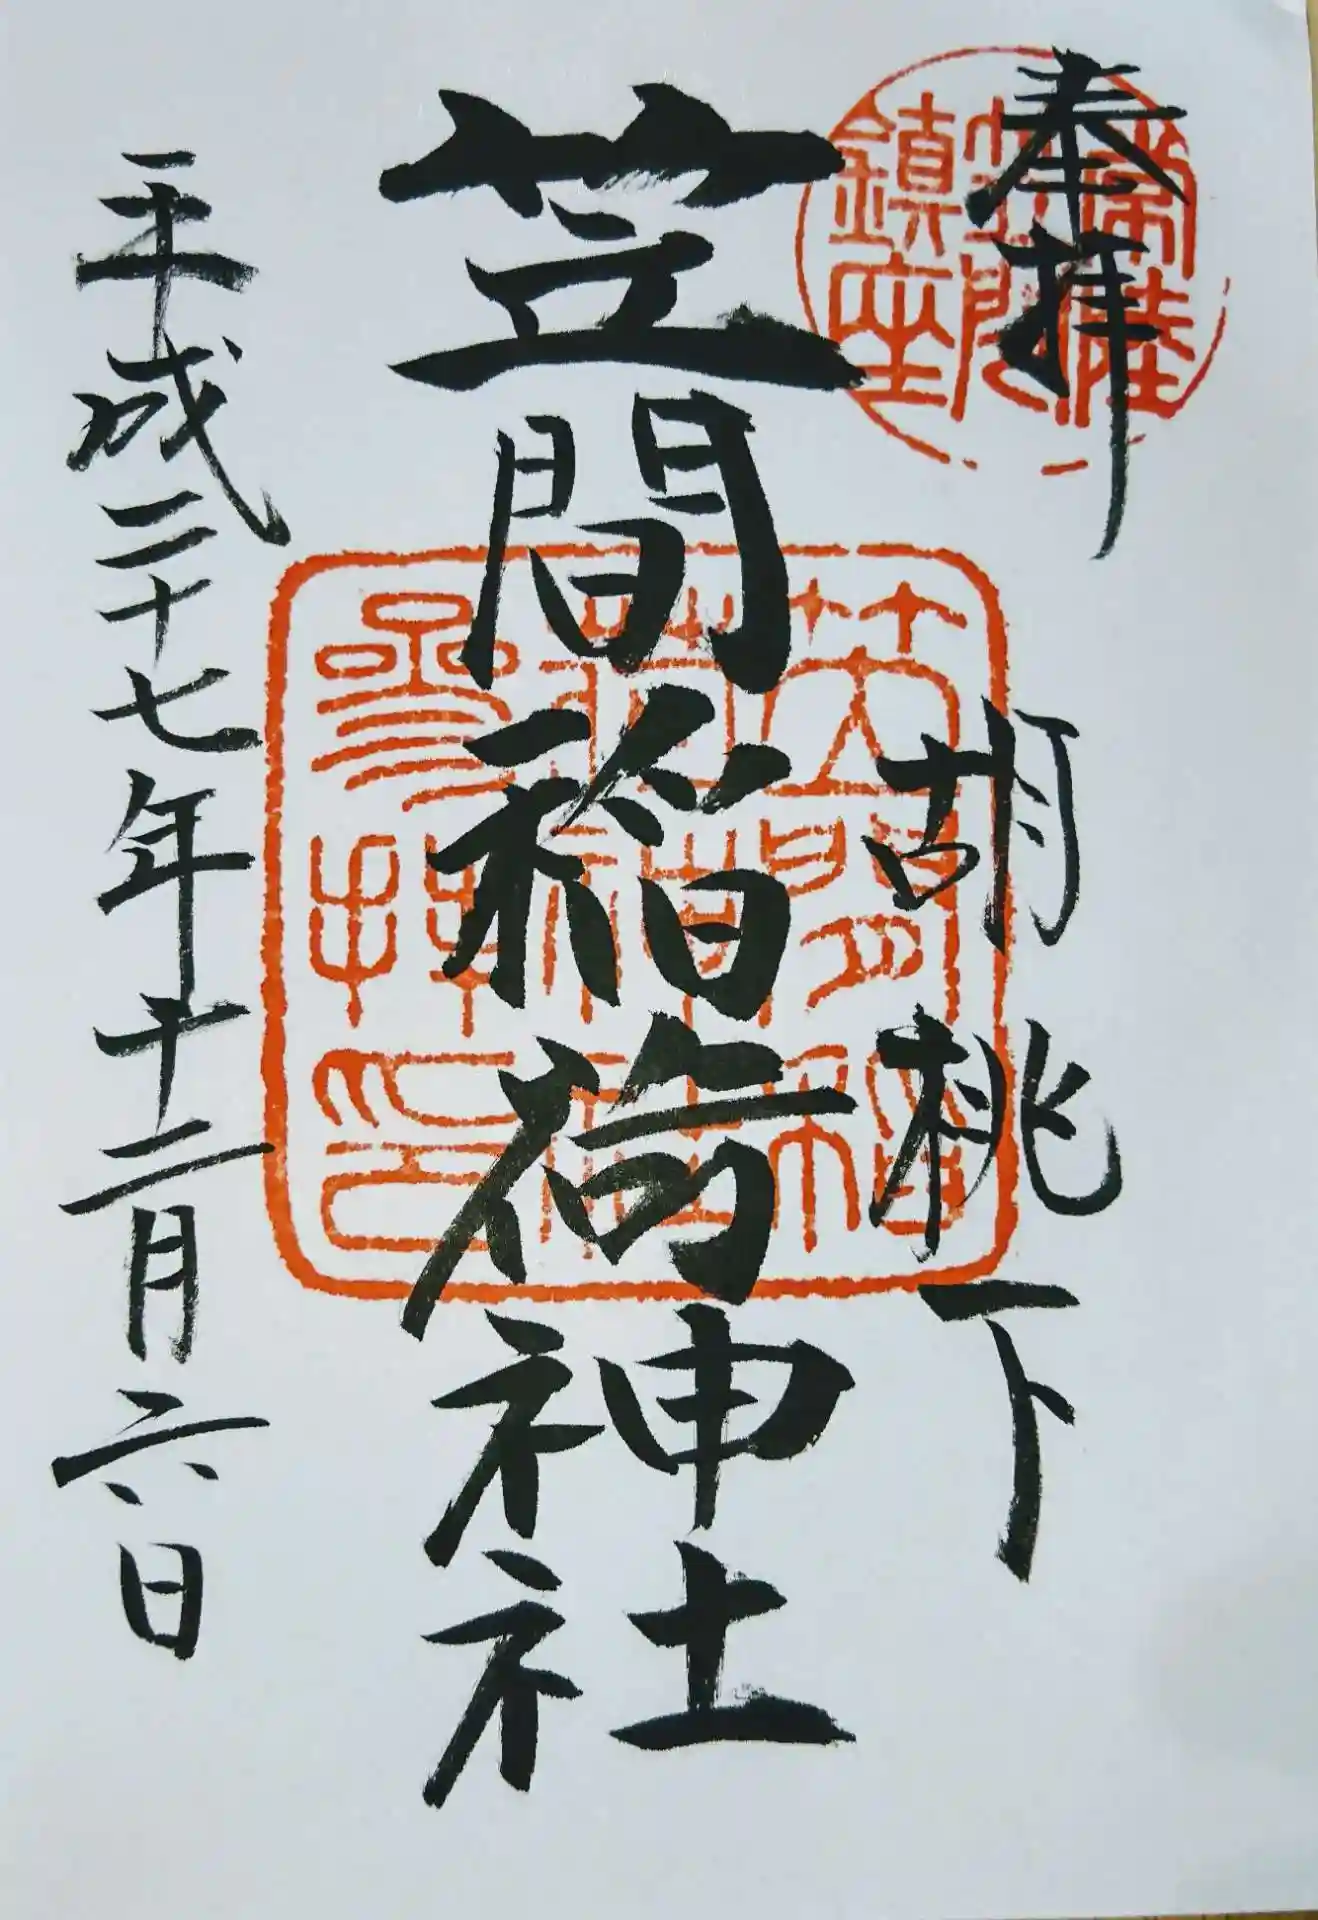 奉拝
胡桃下
笠間稲荷神社
平成二十七年十二月六日
常陸
笠間
鎮座
笠間稲
荷神社
参拝印